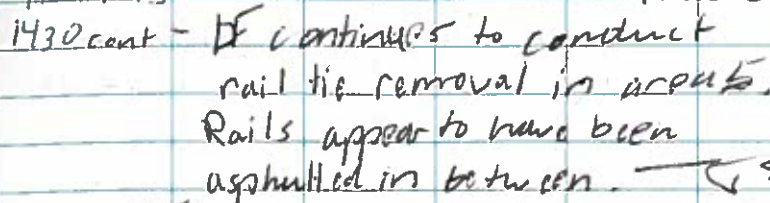 1430 cont - DF continues to conduct
rail tie removal in area 5.
Rails appear to have been
asphulted in between.